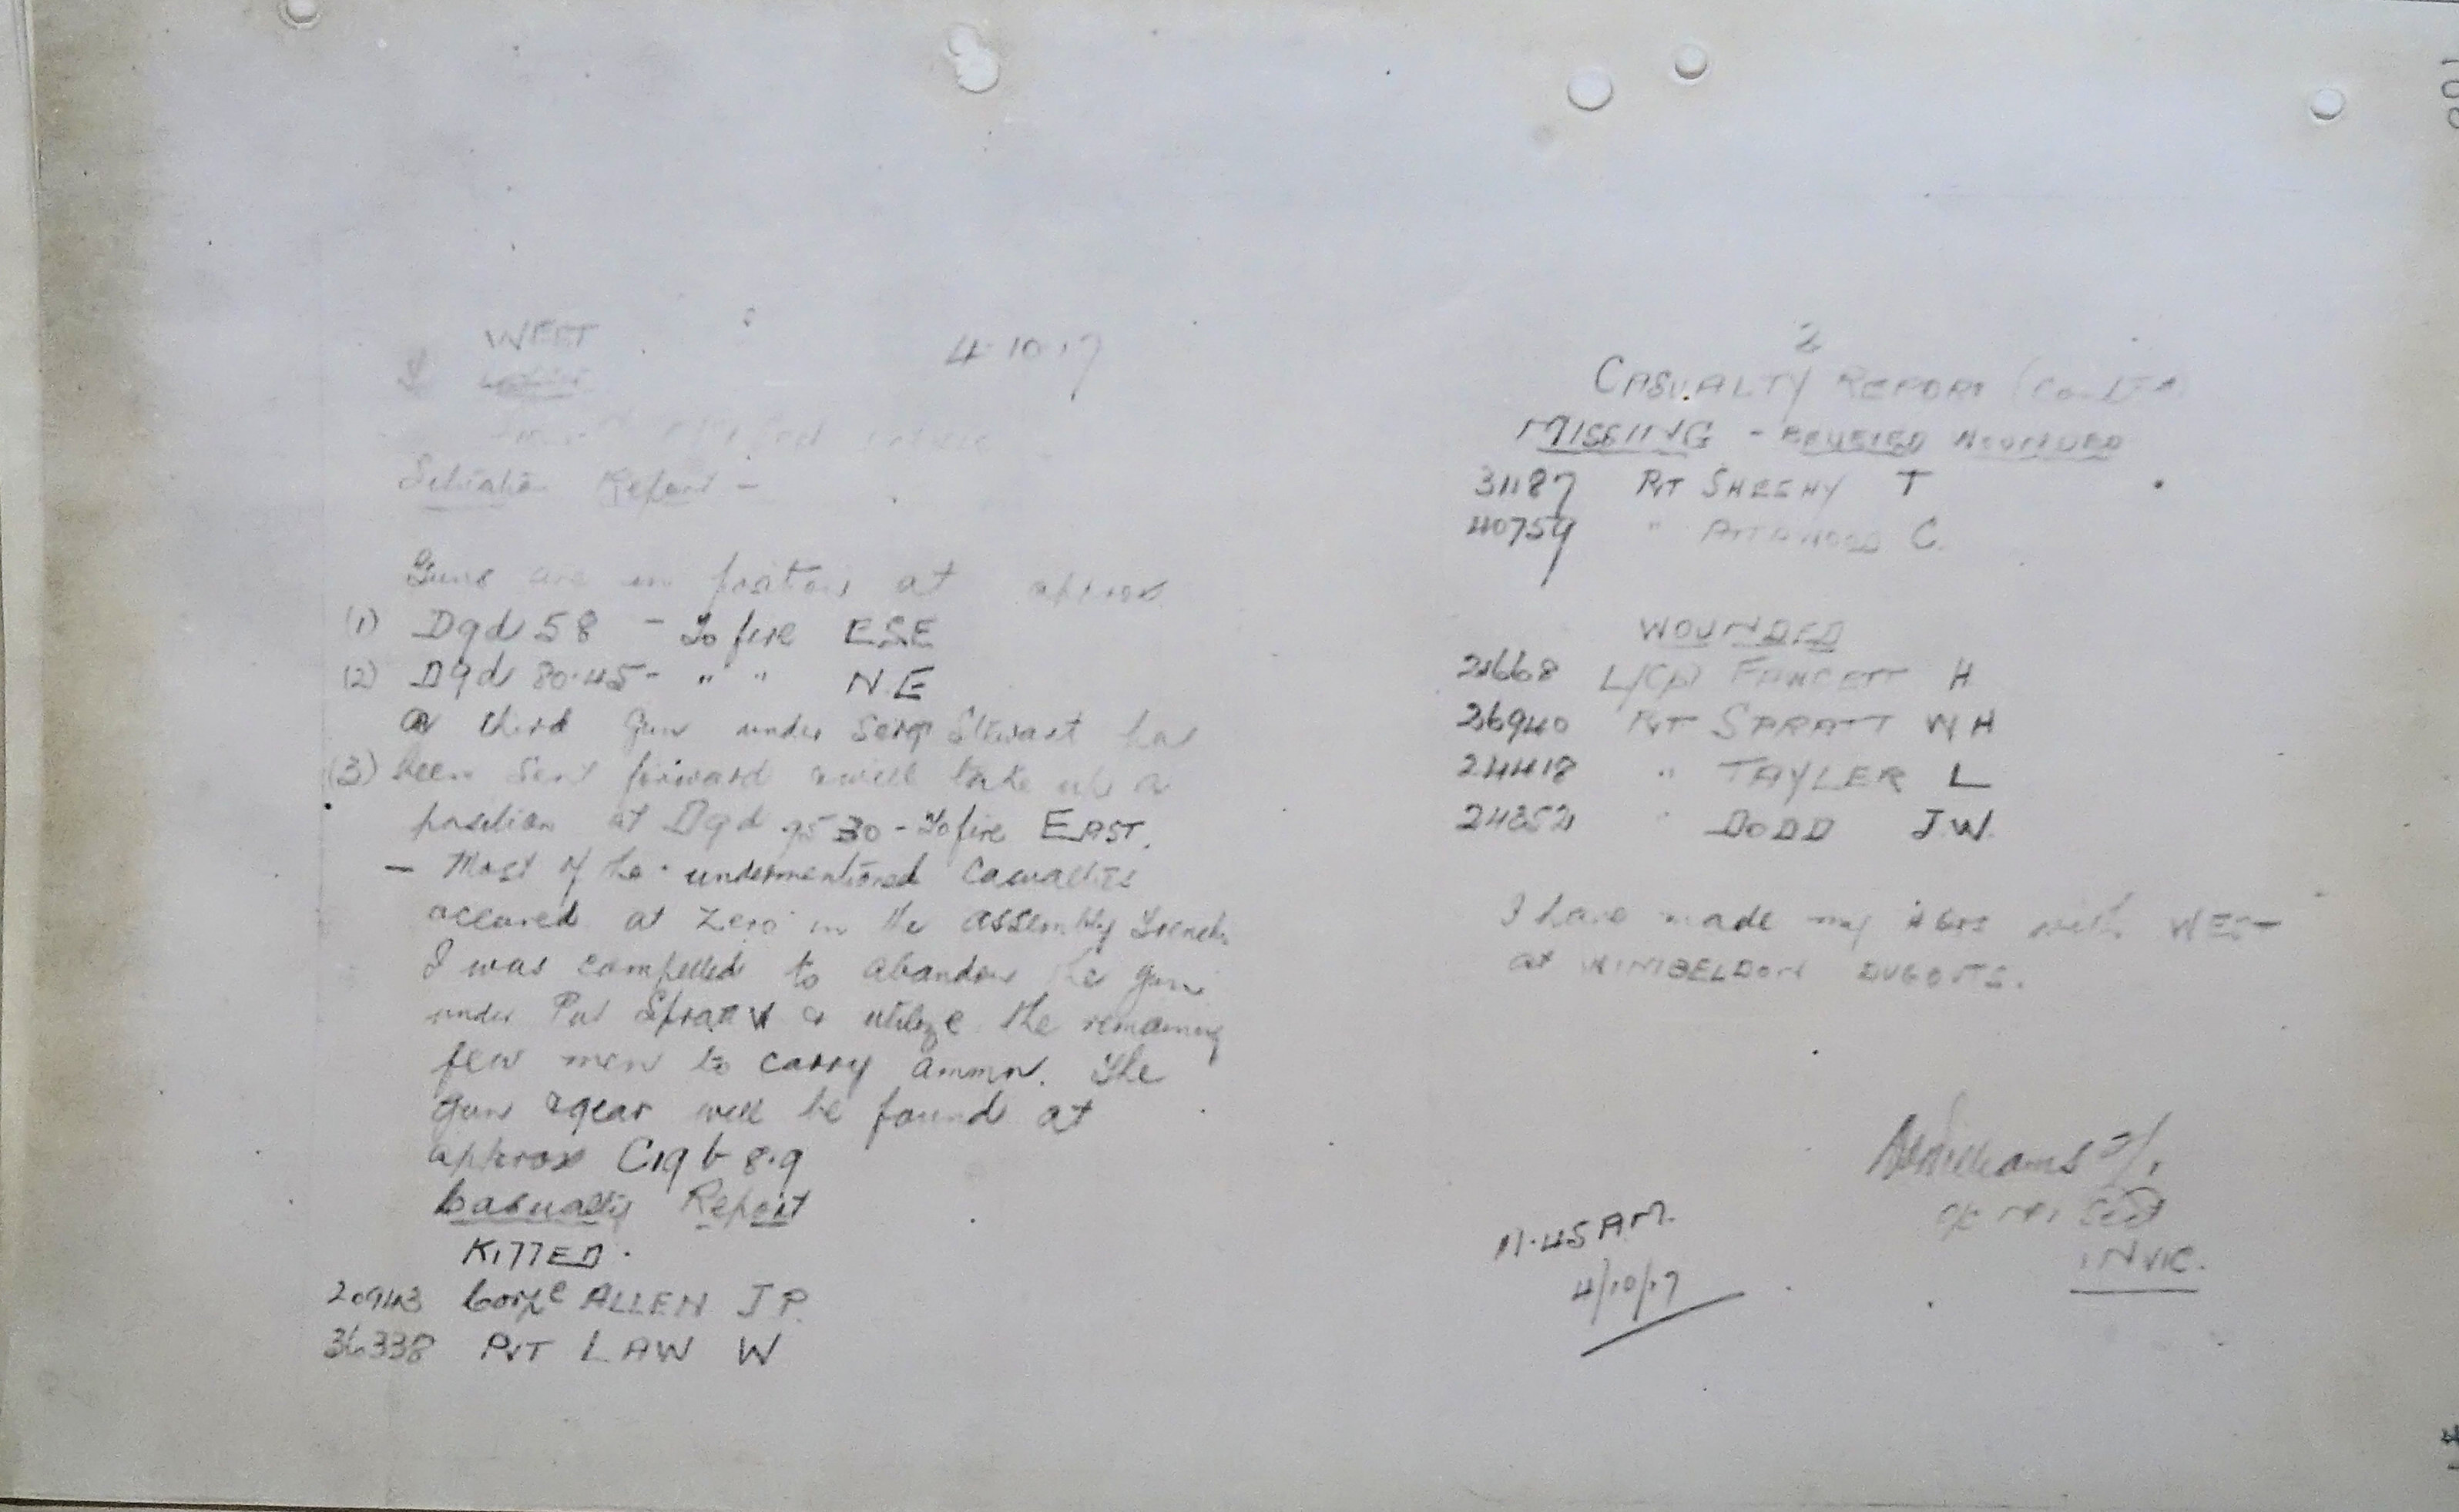 WEST
4.10.17
Situation Report -
Guns are in position at approx
(1) D9d 58 - To fire ESE
(2) D9d 80.45 - " " N.E
A third gun under Serg Stewart has
(3) been sent forward & will take up a
position at D9d 95 30 - To fire EAST.
- Most of the undermentioned casualties
occured at Zero in the assembly Trench
I was compelled to abandon the gun
under Pvt Spratt & utilize the remaining
few men to carry ammn. The
gun & gear will be found at
approx C19 b 8.9
Casualty Report
KILLED.
20943 Corpl ALLEN J P.
36338 PVT LAW W
2
CASUALTY REPORT (Contd)
MISSING - BELIEVED WOUNDED
31187 PVT SHEEHY T
40759 " C.
WOUNDED
21668 L/Cpl FAWCETT H
26940 PVT SPRATT W H
24418 " TAYLER L
24352 " DODD J.W.
I have made my Hqrs with WEST
at WIMBELDON DUGOUTS.
Williams 2/Lt
O/C No 1 Sect
INVIC.
11.45 AM.
4/10/17